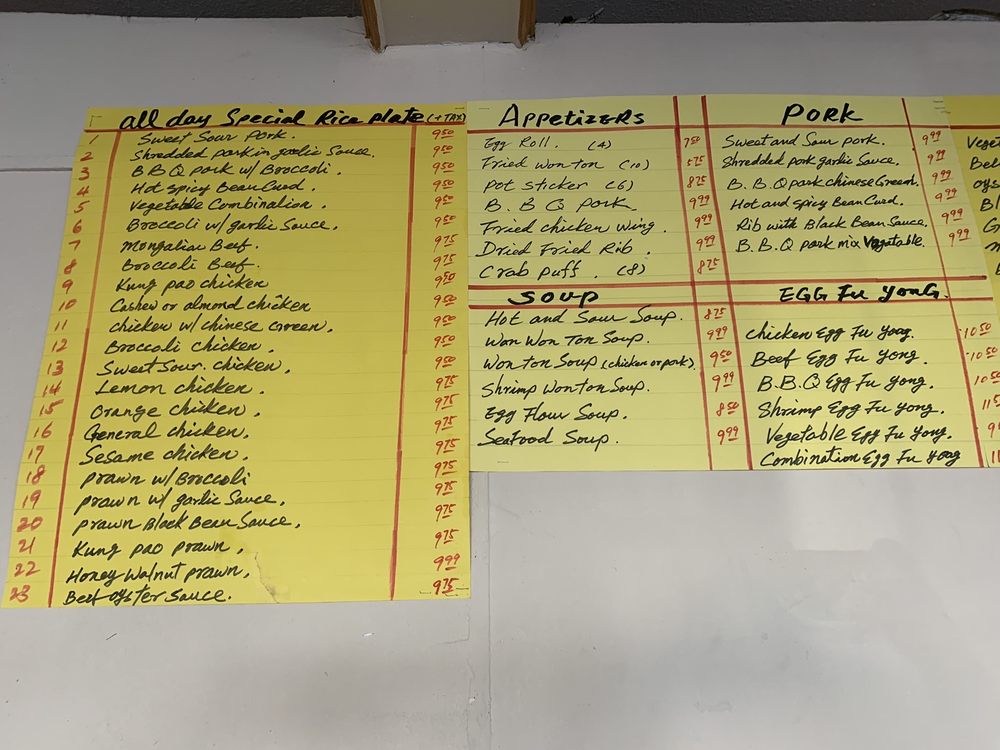 all day Special Rice plate (+TAX)
1 Sweet Sour pork. 9.50
2 Shredded pork in garlic Sauce. 9.50
3 B B Q pork w/ Broccoli. 9.50
4 Hot spicy Bean Curd. 9.50
5 Vegetable Combination. 9.50
6 Broccoli w/ garlic Sauce. 9.50
7 Mongalian Beef. 9.75
8 Broccoli Beef. 9.75
9 Kung pao chicken 9.50
10 Cashew or almond chicken 9.50
11 chicken w/ chinese Green. 9.50
12 Broccoli chicken. 9.50
13 Sweet Sour. chicken. 9.50
14 Lemon chicken. 9.75
15 Orange chicken. 9.75
16 General chicken. 9.75
17 Sesame chicken. 9.75
18 prawn w/ Broccoli 9.75
19 prawn w/ garlic Sauce. 9.75
20 prawn Black Bean Sauce. 9.75
21 Kung pao prawn. 9.75
22 Honey Walnut prawn. 9.99
23 Beef oyster Sauce. 9.75
APPetizERS
Egg Roll. (4) 7.50
Fried Won ton (10) 5.75
pot sticker (6) 8.75
B. B Q pork 9.99
Fried chicken wing. 9.99
Dried Fried Rib. 9.99
Crab puff. (8) 8.75
SOUP
Hot and Sour Soup. 8.75
Wan Won Ton Soup. 9.99
Won ton Soup (chicken or pork). 9.50
Shrimp Won ton Soup. 9.99
Egg Flour Soup. 8.50
Seafood Soup. 9.99
PORK
Sweet and Sour pork. 9.99
Shredded pork garlic Sauce. 9.99
B. B. Q pork chinese Green. 9.99
Hot and spicy Bean Curd. 9.99
Rib with Black Bean Sauce. 9.99
B. B. Q pork mix Vegetable. 9.99
EGG Fu YONG.
chicken Egg Fu Yong. 10.50
Beef Egg Fu Yong. 10.50
B. B. Q Egg Fu Yong. 10.50
Shrimp Egg Fu Yong.
Vegetable Egg Fu Yong.
Combination Egg Fu Yong